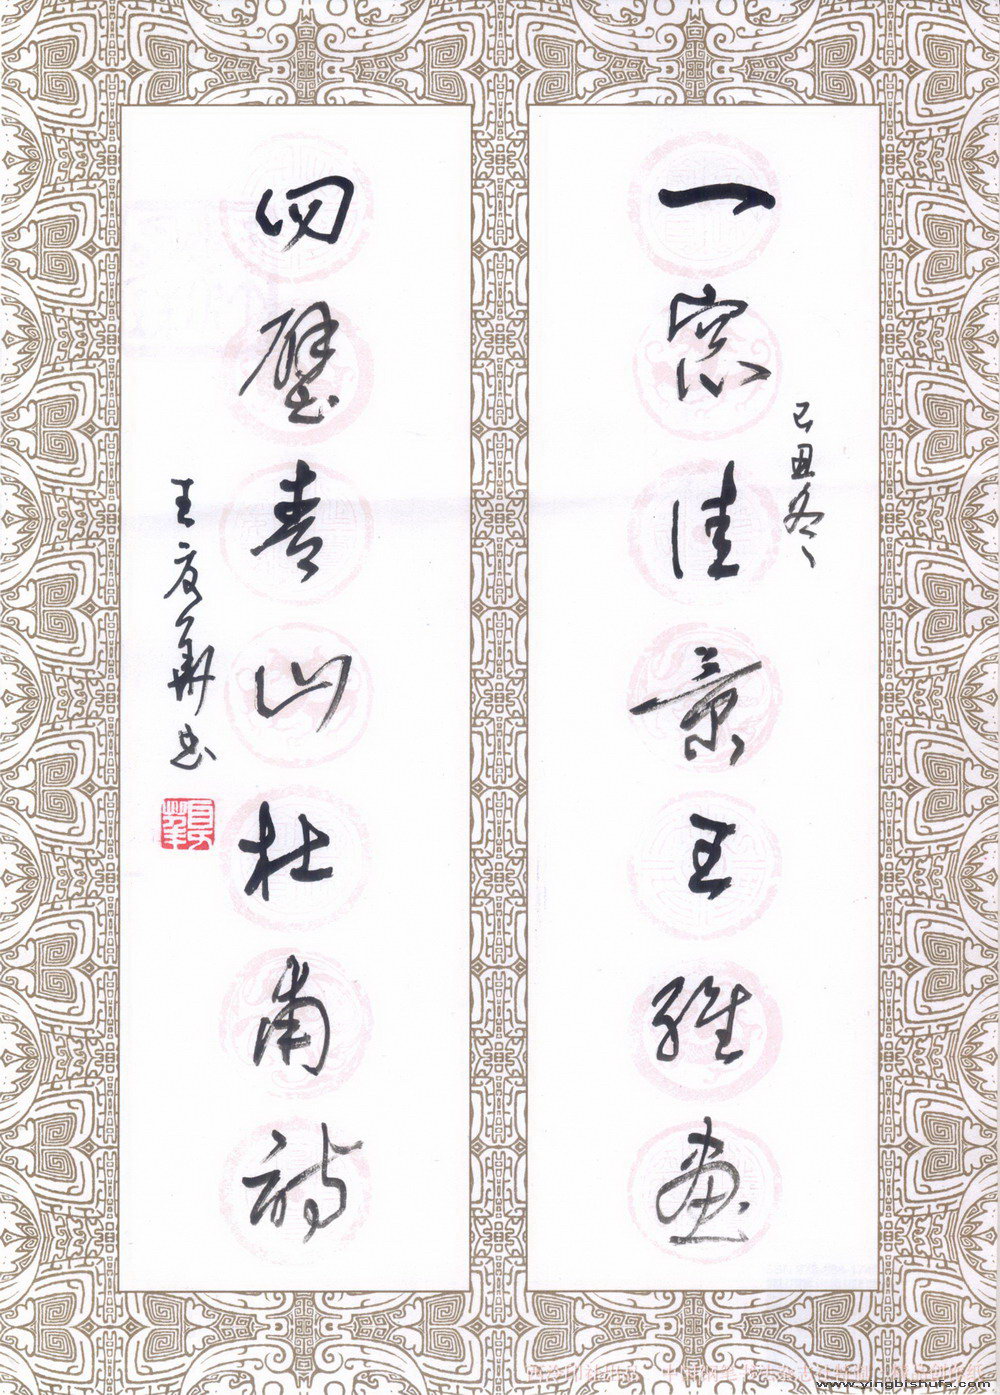 一窗佳景王維畫
己丑冬
四壁青山杜甫詩
王夏華書
www.yingbishufa.com